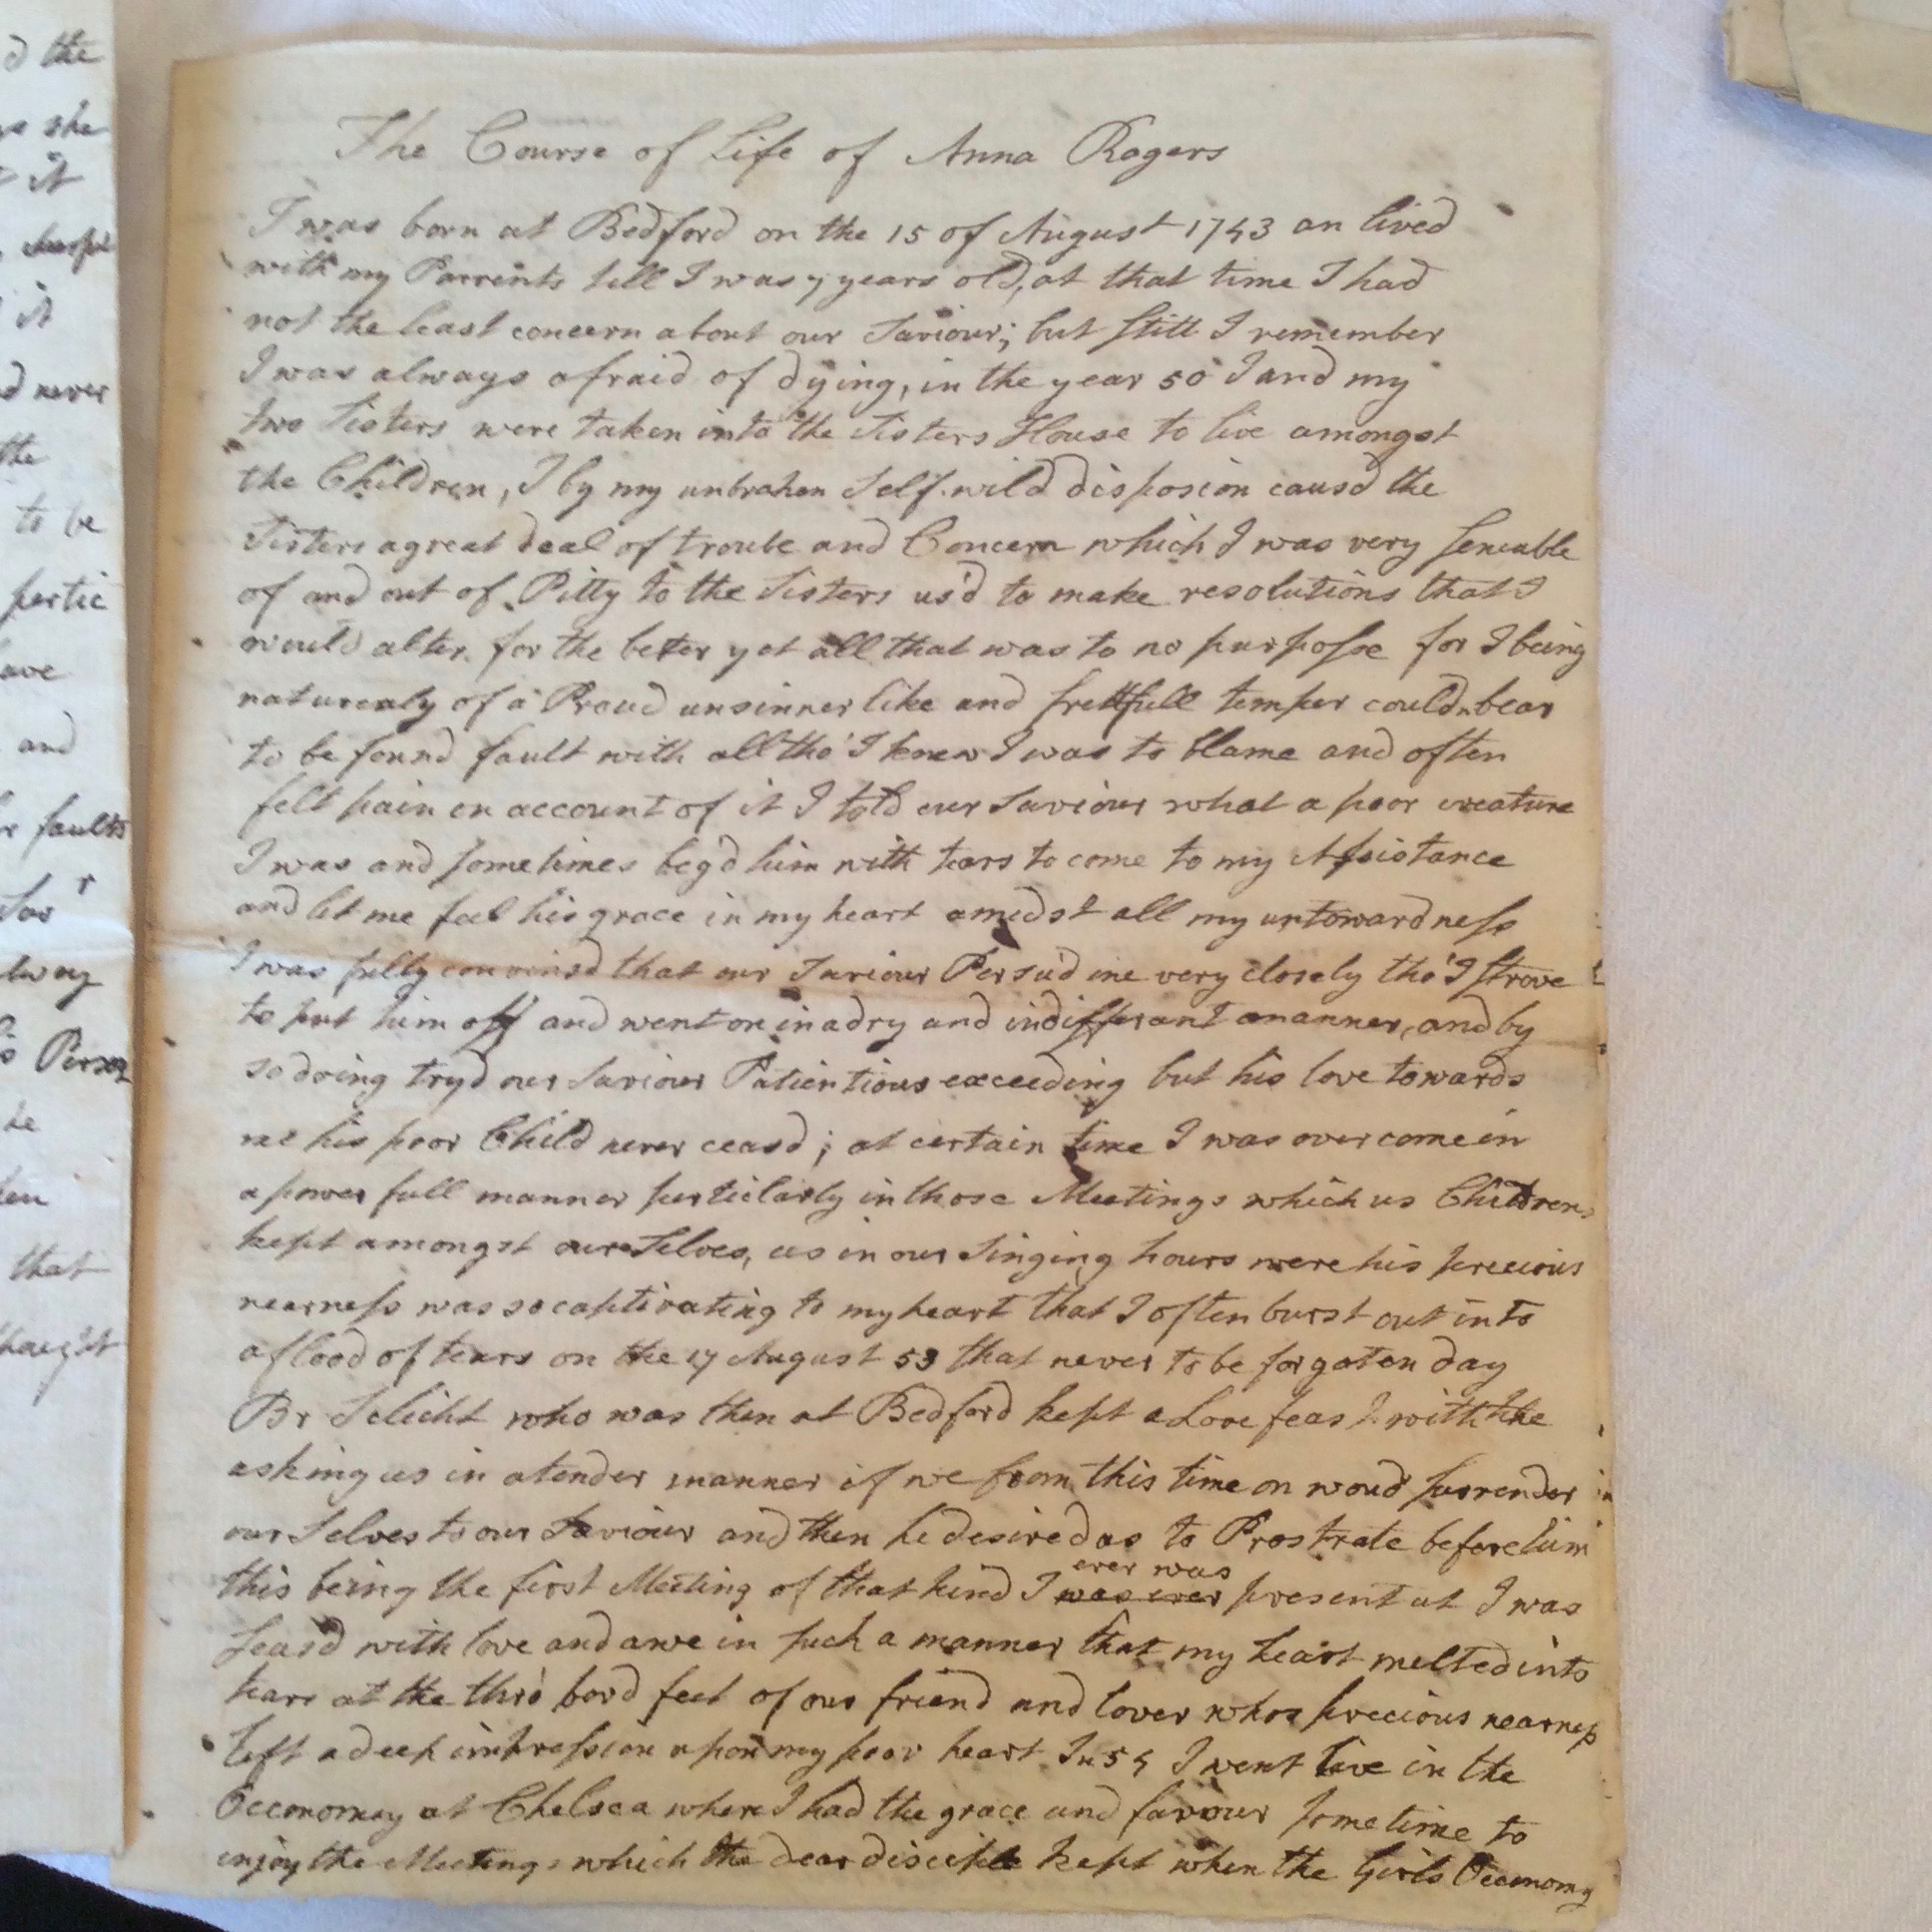 d the
s she
it
it
d never
the
to be
pertic
ave
and
r faults
r
lway
s Person
he
that
The Course of Life of Anna Rogers
I was born at Bedford on the 15 of August 1743 an lived
with my Parrents till I was 7 years old, at that time I had
not the least concern about our Saviour; but still I remember
I was always afraid of dying, in the year 50 I and my
two Sisters were taken into the Sisters House to live amongst
the Children, I by my unbroken Self-wild disposion causd the
Sisters a great deal of trouble and Concern which I was very senceable
of and out of Pitty to the Sisters us'd to make resolutions that I
would alter for the beter yet all that was to no purposse for I being
naturealy of a Proud unsinner like and frettfull temper could n bear
to be found fault with all tho' I knew I was to blame and often
felt pain on account of it I told our Saviour what a poor creature
I was and sometimes beg'd him with tears to come to my Assistance
and let me feel his grace in my heart amidst all my untowardness
I was fully convinsd that our Saviour Persu'd me very closely tho' I strove
to put him off and went on in a dry and indifferant manner, and by
so doing tryd our Saviour Patientious exceeding but his love towards
me his poor Child never ceasd; at certain time I was over come in
a power full manner perticlarly in those Meetings which us Children
kept amongst our Selves, as in our Singing hours were his precious
nearness was so captivating to my heart that I often burst out into
a flood of tears on the 17 August 53 that never to be forgoten day
Br Schicht who was then at Bedford kept a Love feast with the
asking us in a tender manner if we from this time on woud surrender
our Selves to our Saviour and then he desired us to Prostrate before him
ever was
this being the first Meeting of that kind I was ever present at I was
seas'd with love and awe in such a manner that my heart melted into
tears at the thro' bord feet of our friend and lover whos precious nearness
left a deep impression upon my poor heart In 54 I went live in the
Oeconomy at Chelsea where I had the grace and favour sometime to
injoy the Meetings which the dear disciple kept when the Girls Oeconomy